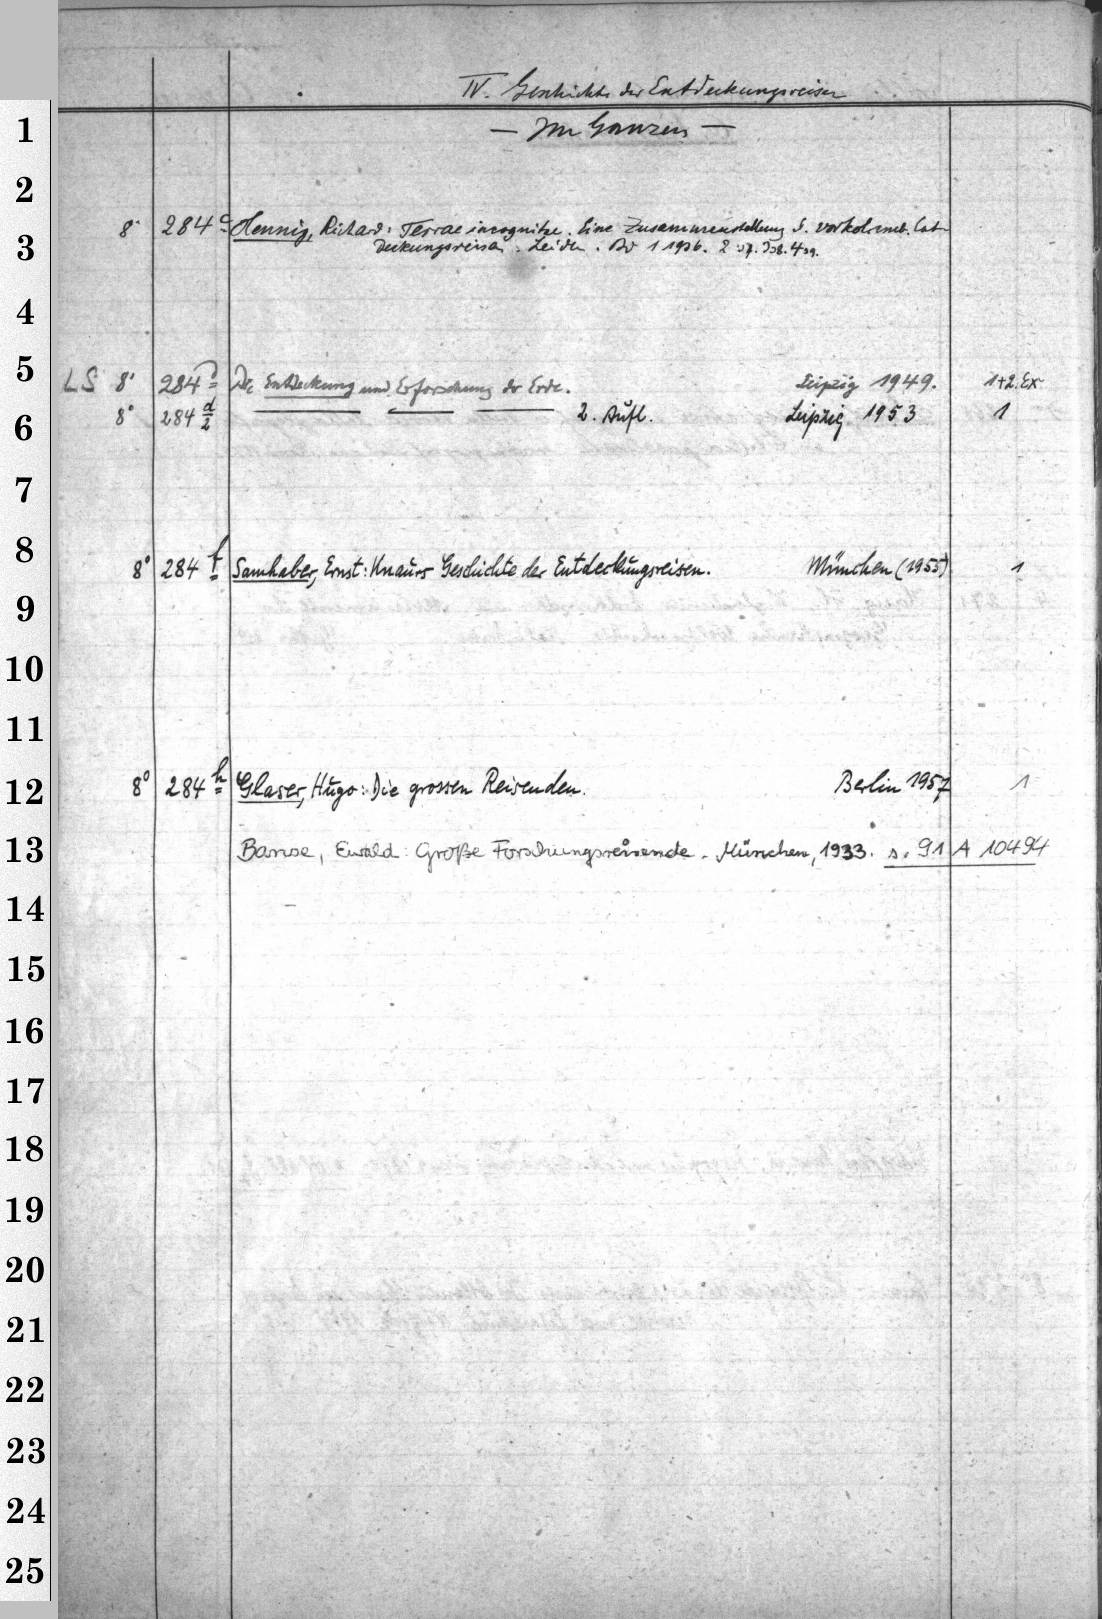 IV. Geschichte der Entdeckungsreisen
— Im Ganzen —
1
2
8° 284 c Hennig, Richard: Terrae incognitae. Eine Zusammenstellung d. vorkolumb. Ent-
3
deckungsreisen. Leiden. Bd 1 1936. 2 37. 3 38. 4 39.
4
5
LS 8° 284 d Die Entdeckung und Erforschung der Erde. Leipzig 1949. 1+2. Ex
6
8° 284 d/2 — — — 2. Aufl. Leipzig 1953 1
7
8
8° 284 f Samhaber, Ernst: Knaurs Geschichte der Entdeckungsreisen. München (1955) 1
9
10
11
12
8° 284 h Glaser, Hugo: Die grossen Reisenden. Berlin 1957 1
13
Banse, Ewald: Große Forschungsreisende. München, 1933. s. 91 A 10494
14
15
16
17
18
19
20
21
22
23
24
25